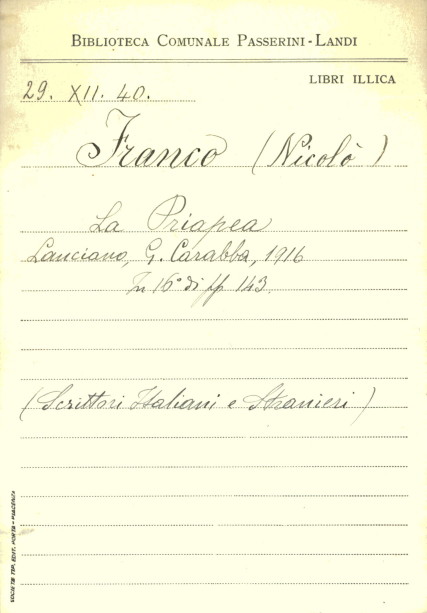 BIBLIOTECA COMUNALE PASSERINI-LANDI
LIBRI ILLICA
29. XII. 40.
Franco (Nicolò)
La Priapea
Lanciano, G. Carabba, 1916
In 16° di pp 143.
(Scrittori Italiani e Stranieri)